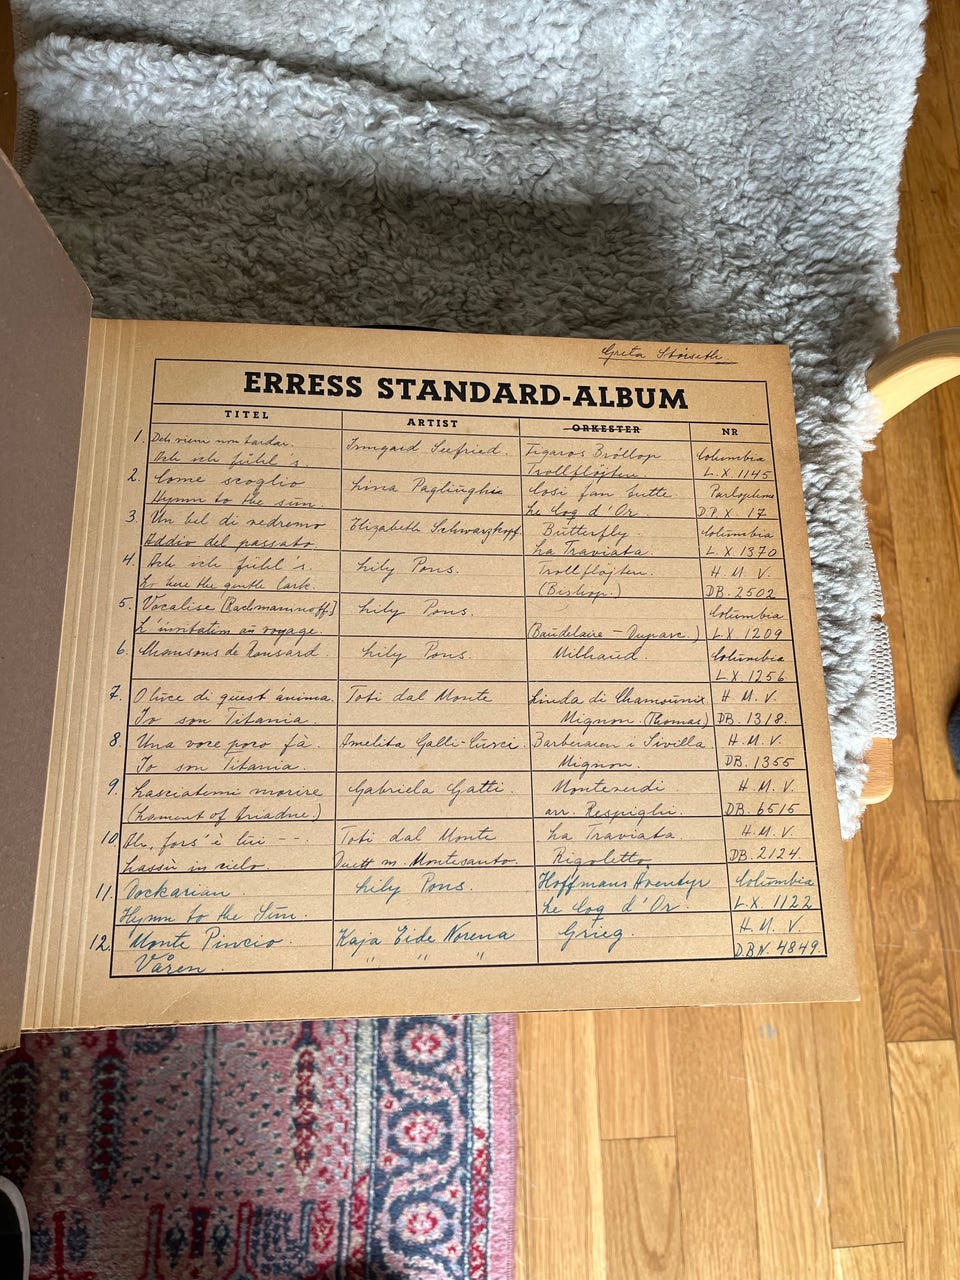 Greta
ERRESS STANDARD-ALBUM
TITEL ARTIST ORKESTER NR
1. Deh vieni non tardar. Irmgard Seefried. Figaros Bröllop Columbia
Ach ich fühl's. Trollflöjten L.X. 1145
2. Come scoglio Lina Pagliughi Cosi fan tutte. Parlophone
Hymn to the sun. Le Coq d'Or. D.P.X. 17
3. Un bel di vedremo Elizabeth Schwarzkopf. Butterfly. Columbia
Addio del passato La Traviata. L.X 1370
4. Ach ich fühl's. Lily Pons. Trollflöjten. H.M.V.
Lo here the gentle lark. (Bishop.) DB. 2502
5. Vocalise [Rachmaninoff] Lily Pons. Columbia
L'invitation au voyage. (Baudelaire - Duparc.) L.X 1209
6. Chansons de Ronsard. Lily Pons. Milhaud. Columbia
L.X. 1256
7. O luce di quest'anima. Toti dal Monte Linda di Chamounix H.M.V.
Io son Titania. Mignon. (Thomas) DB. 1318.
8. Una voce poco fà. Amelita Galli-Curci. Barberaren i Sivilla. H.M.V.
Io son Titania. Mignon. DB. 1355
9. Lasciatemi morire Gabriela Gatti. Monteverdi H.M.V.
(Lament of Ariadne.) arr. Respighi. DB. 6515
10. Ah, fors'è lui -- Toti dal Monte La Traviata. H.M.V.
Lassù in cielo. Duett m. Montesanto. Rigoletto DB. 2124.
11. Dockarian. Lily Pons. Hoffmans Äventyr Columbia
Hymn to the Sun. Le Coq d'Or. L.X. 1122
12. Monte Pincio. Kaja Eide Norena Grieg. H.M.V.
Våren. " " " D.B.N. 4849.